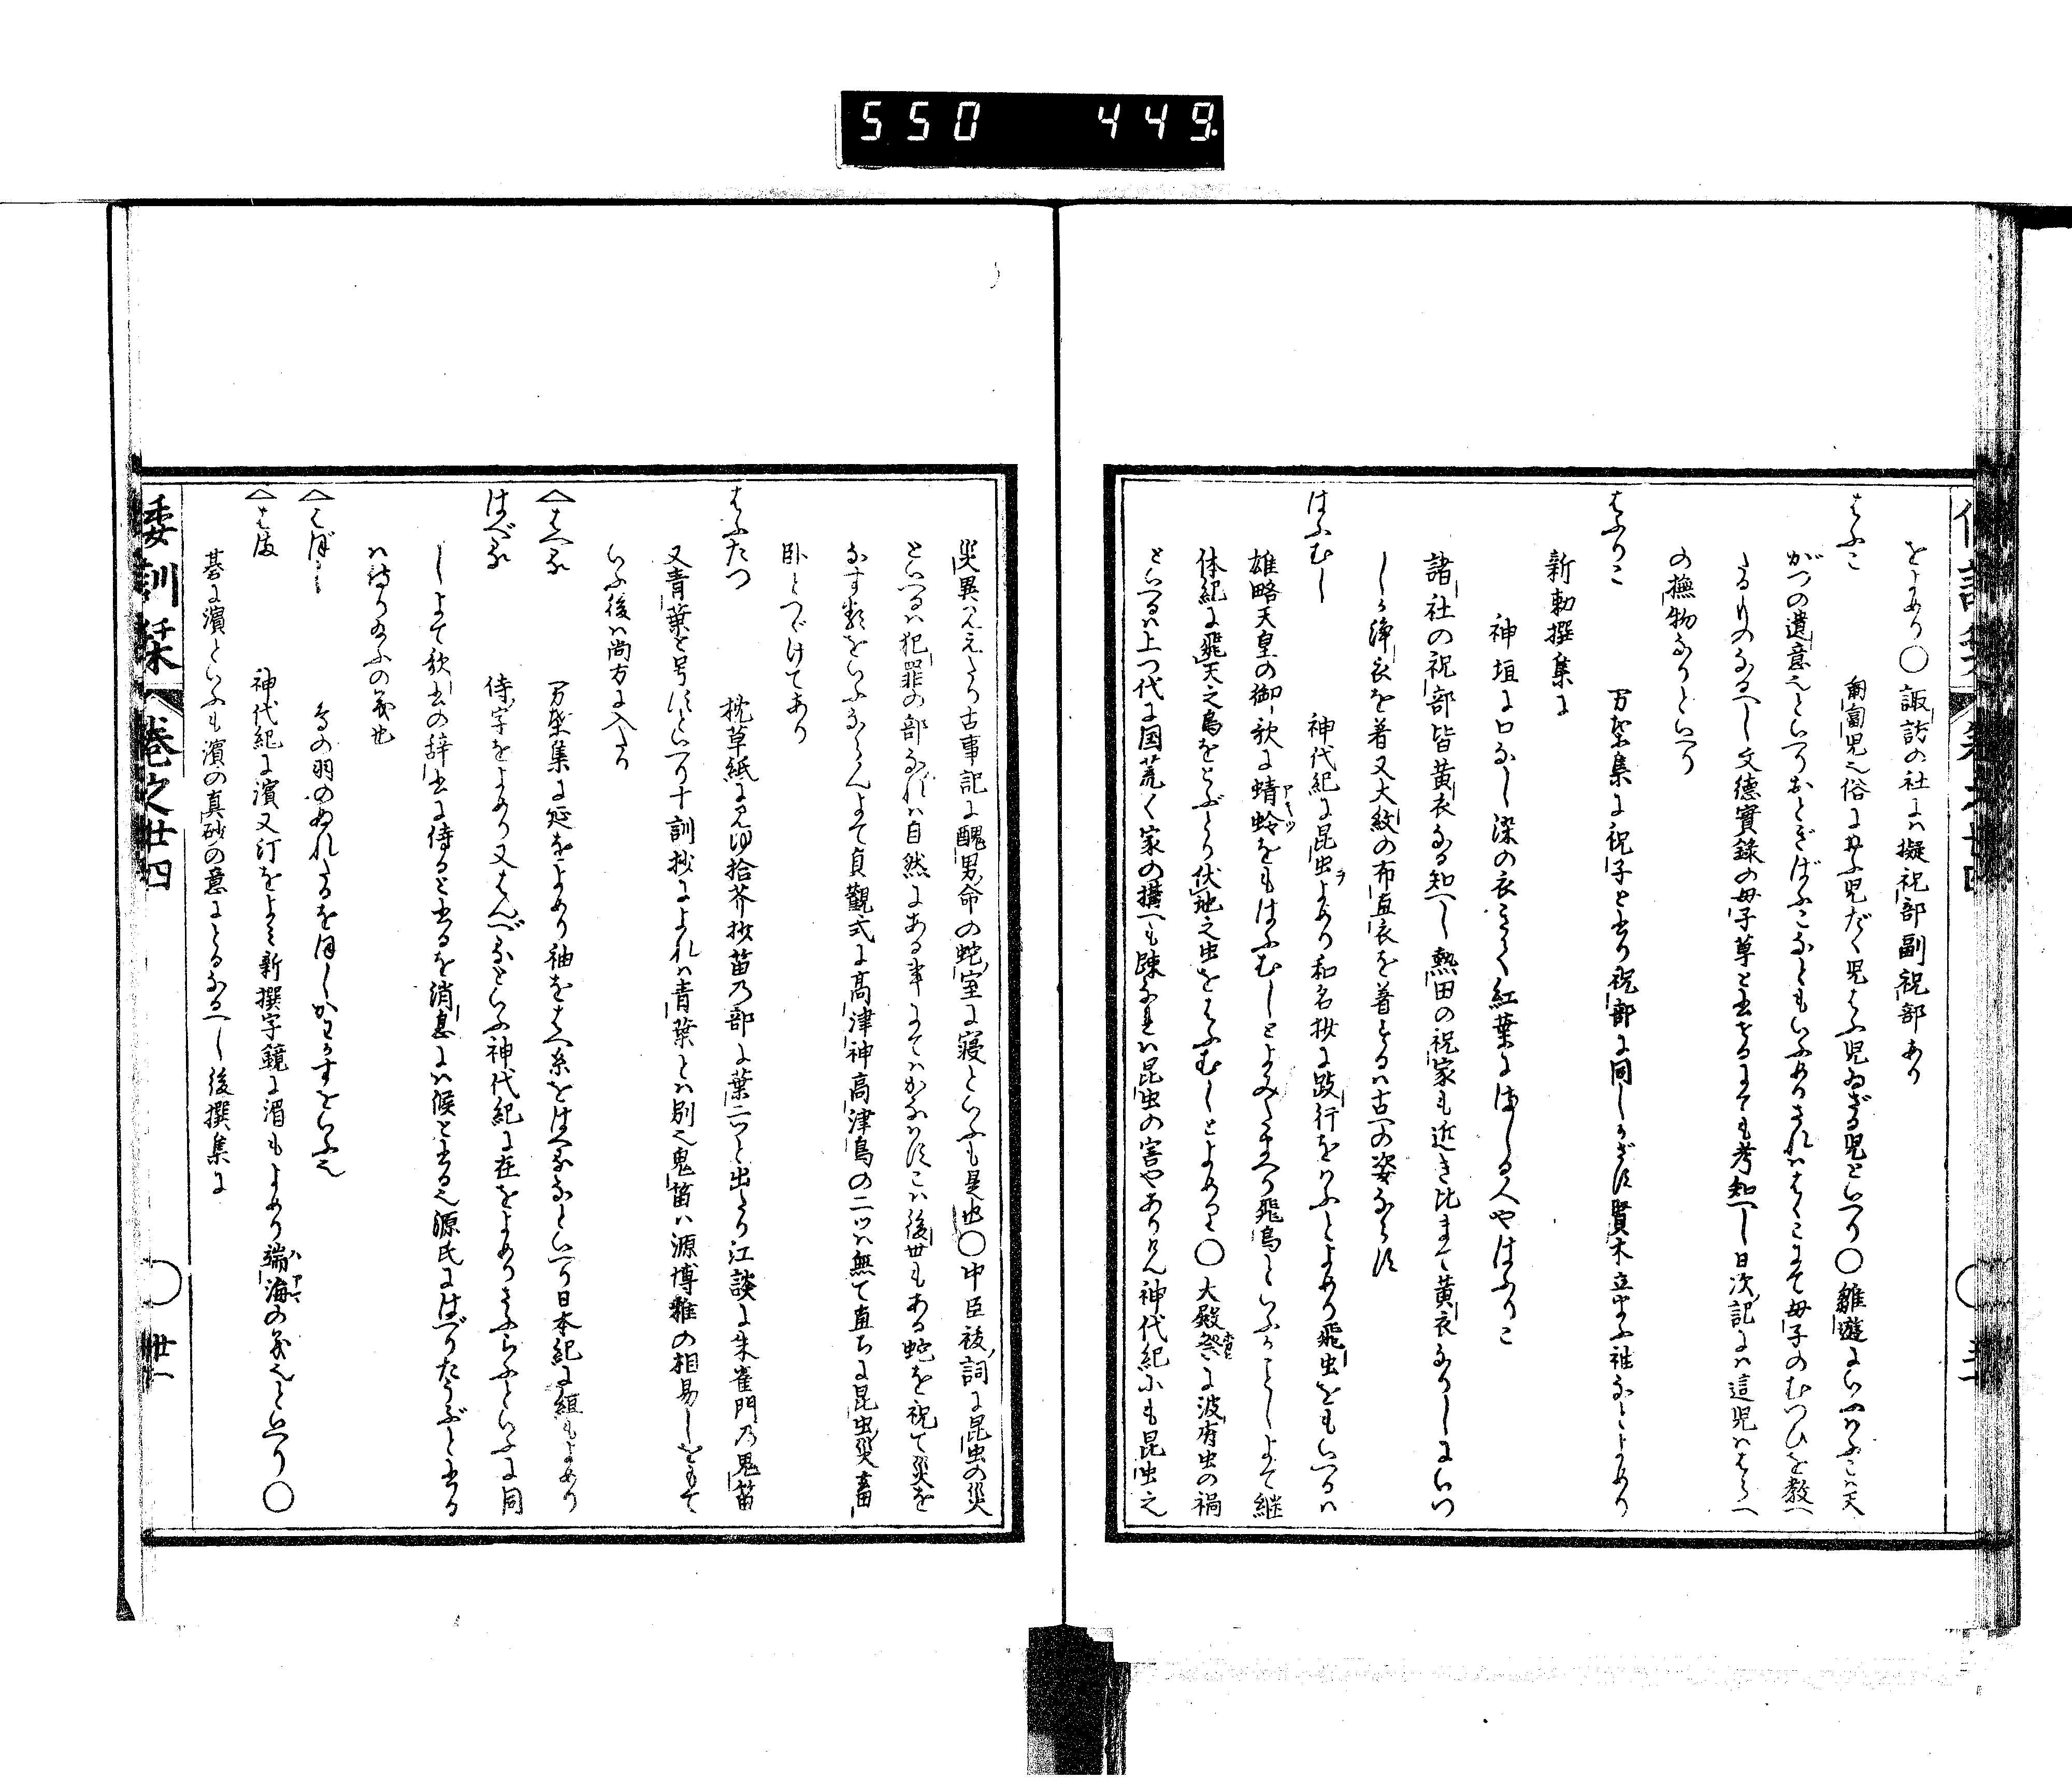 550 449.
をよめり○諏訪の社には擬祝部副祝部あり
はふこ 匍匐児之俗に母ふ児だく児はふ児ゐざる児といへり○雛遊にいふはふこは天
がつの遺意といへりおとぎばふこなともいふめりされははゝこにて母子のむつひを教へ
たるものなるへし文徳實録の母子草と書るにても考知へし日次記には這児ははらへ
の撫物なりといへり
はふりこ 万葉集に祝子と書り祝部に同し
新勅撰集に
神垣に口なし染の衣きて紅葉にましる人やはふりこ
諸社の祝部皆黄衣なる知へし熱田の祝家も近き比まて黄衣なりしにいつ
しか浄衣を着又大紋の布直衣を着るは古への姿ならす
はふむし 神代紀に昆虫をよめり和名抄に跂行をはふとよめり飛虫をもいへるは
雄略天皇の御歌に蜻蛉をもはふむしとよみたまへり飛鳥といふかことしよて継
体紀に飛天之鳥をとぶとり伏地之虫をはふむしとよめり○大殿祭に波府虫の禍
といへるは上つ代は国荒く家の搆へも踈なれは昆虫の害やありけん神代紀にも昆虫之
災異みえたり古事記に醜男命の蛇室に寝といふも是也○中臣祓詞に昆虫の災
といへるは犯罪の部なれは自然にある事にてはかなはすこは後世もある蛇を祝て災を
なす類をいふならんよて貞觀式に高津神高津鳥の二つは無て直ちに昆虫災畜
臥とつゞけてあり
はふたつ 枕草紙に見ゆ拾芥抄笛乃部に葉二つと出たり江談に朱雀門乃鬼笛
又青葉と号すといへり十訓抄によれは青葉とは別之鬼笛は源博雅の相易しをもて
いふ後は尚方に入たり
はへる 万葉集に延をよめり袖をはへ糸をはへるなといへり日本紀に絙もよめり
はべる 侍字をよめり又はんべるといふ神代紀に在をよめりさふらふといふに同
しよて歌書の辞書に侍ると書るを消息には候と書る之源氏にはべりたうぶと書る
は侍り給ふの義也
はぼし 鳥の羽のぬれたるをほしかわかすをいふ之
はま 神代紀に濱又汀をよみ新撰字鏡に湄もよめり端海の義之といへり○
碁に濱といふも濱の真砂の意にとるなるへし後撰集に
倭訓栞 巻之廿四 ○ 卅一